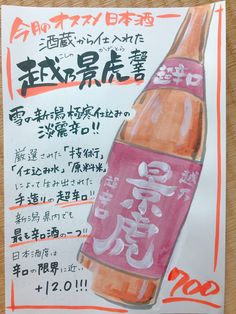 今月のオススメ日本酒
酒蔵から仕入れた
こしの かげとら
越乃景虎 超辛口
雪の新潟極寒仕込みの
淡麗辛口!!
厳選された「技術」
「仕込み水」「原料米」
によって生み出された
手造りの超辛口!!
新潟県内でも
最も辛口酒の一つ!!
日本酒度は
辛口の限界に近い
+12.0!!!
超辛口
越乃
景虎
超辛口
700